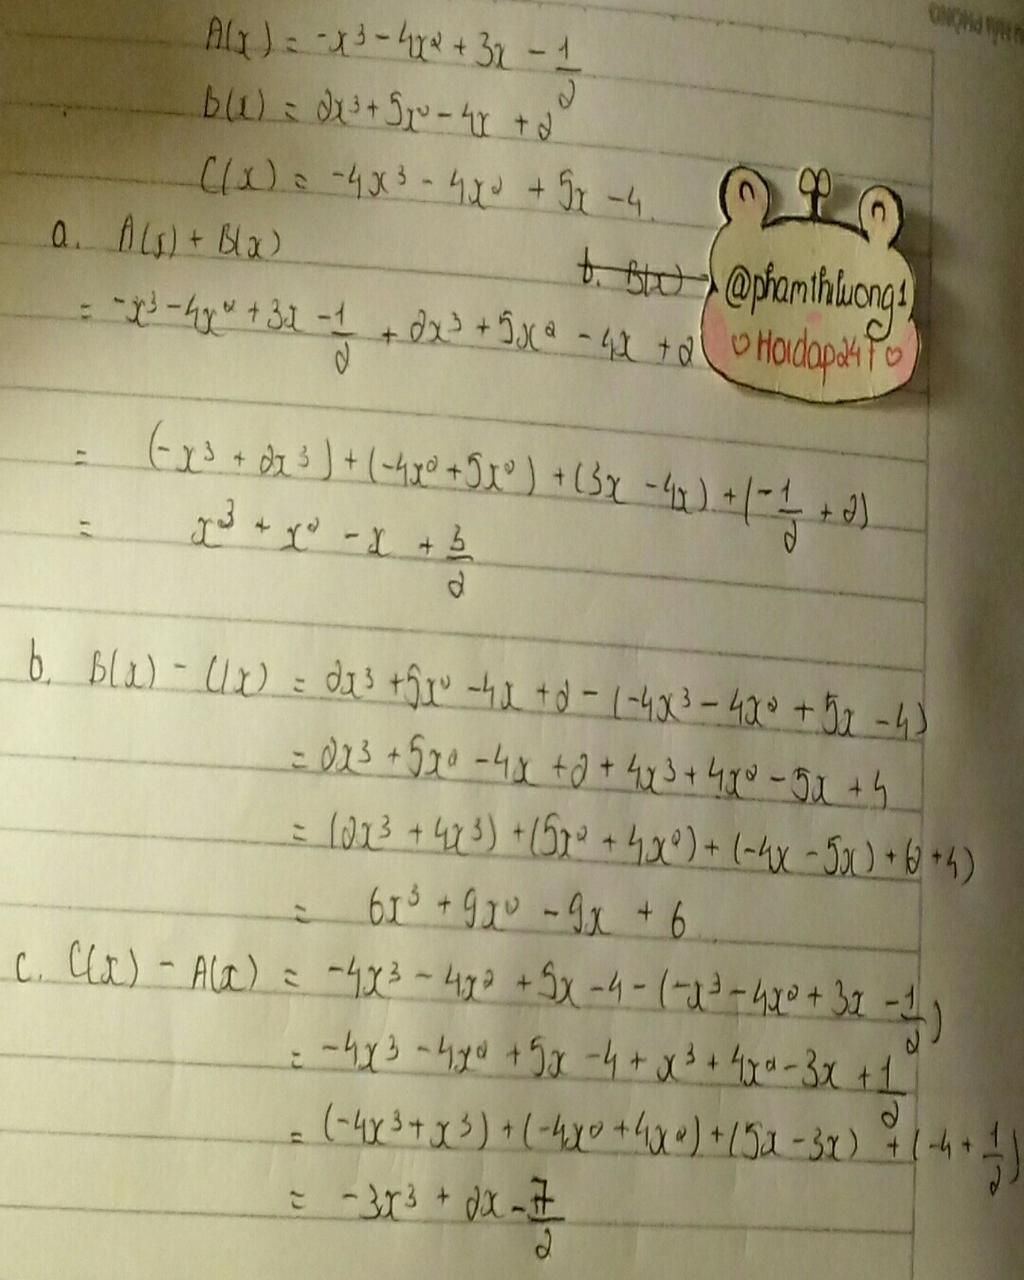 A(x) = -x³ - 4x² + 3x - 1/2
B(x) = 2x³ + 5x² - 4x + 2
C(x) = -4x³ - 4x² + 5x - 4
a. A(x) + B(x)
b. B(x)
@phamthiluong1
♡Hoidap247♡
= -x³ - 4x² + 3x - 1/2 + 2x³ + 5x² - 4x + 2
= (-x³ + 2x³) + (-4x² + 5x²) + (3x - 4x) + (-1/2 + 2)
= x³ + x² - x + 3/2
b. B(x) - C(x) = 2x³ + 5x² - 4x + 2 - (-4x³ - 4x² + 5x - 4)
= 2x³ + 5x² - 4x + 2 + 4x³ + 4x² - 5x + 4
= (2x³ + 4x³) + (5x² + 4x²) + (-4x - 5x) + (2 + 4)
= 6x³ + 9x² - 9x + 6
c. C(x) - A(x) = -4x³ - 4x² + 5x - 4 - (-x³ - 4x² + 3x - 1/2)
= -4x³ - 4x² + 5x - 4 + x³ + 4x² - 3x + 1/2
= (-4x³ + x³) + (-4x² + 4x²) + (5x - 3x) + (-4 + 1/2)
= -3x³ + 2x - 7/2